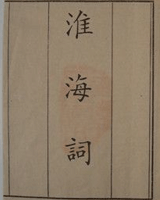 淮海詞